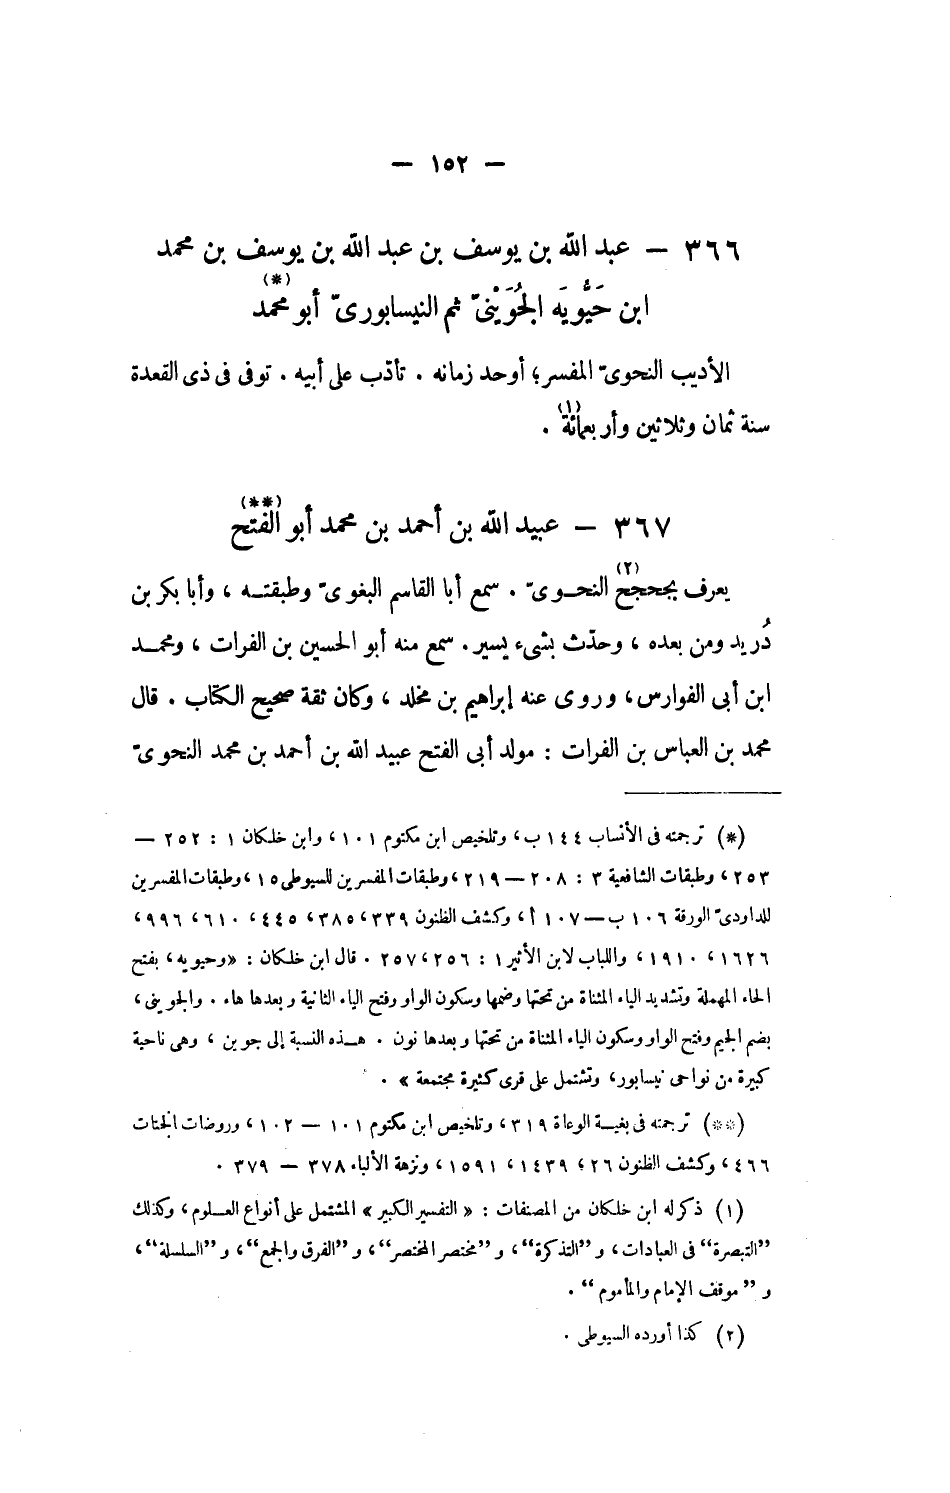 — ١٥٢ —
٣٦٦ — عبد الله بن يوسف بن عبد الله بن يوسف بن محمد
ابن حَيُّويَه الجُوَيْنىّ ثم النيسابورىّ أبو محمد(*)
الأديب النحوىّ المفسر؛ أوحد زمانه . تأدّب على أبيه . توفى فى ذى القعدة
سنة ثمان وثلاثين وأربعمائة(١) .
٣٦٧ — عبيد الله بن أحمد بن محمد أبو الفتح(**)
يعرف بجحجح(٢) النحوىّ . سمع أبا القاسم البغوىّ وطبقته ، وأبا بكر بن
دُريد ومن بعده ، وحدّث بشىء يسير . سمع منه أبو الحسين بن الفرات ، ومحمد
ابن أبى الفوارس ، وروى عنه إبراهيم بن مخلد ، وكان ثقة صحيح الكتاب . قال
محمد بن العباس بن الفرات : مولد أبى الفتح عبيد الله بن أحمد بن محمد النحوىّ
(*) ترجمته فى الأنساب ١٤٤ ب ، وتلخيص ابن مكتوم ١٠١ ، وابن خلكان ١ : ٢٥٢ —
٢٥٣ ، وطبقات الشافعية ٣ : ٢٠٨ — ٢١٩ ، وطبقات المفسرين للسيوطى ١٥ ، وطبقات المفسرين
للداودىّ الورقة ١٠٦ ب — ١٠٧ أ ، وكشف الظنون ٣٣٩ ، ٣٨٥ ، ٤٤٥ ، ٦١٠ ، ٩٩٦ ،
١٦٢٦ ، ١٩١٠ ، واللباب لابن الأثير ١ : ٢٥٦ ، ٢٥٧ . قال ابن خلكان : «وحيويه ، بفتح
الحاء المهملة وتشديد الياء المثناة من تحتها وضمها وسكون الواو وفتح الياء الثانية وبعدها هاء . والجوينى ،
بضم الجيم وفتح الواو وسكون الياء المثناة من تحتها وبعدها نون . هذه النسبة إلى جوين ، وهى ناحية
كبيرة من نواحى نيسابور ، وتشتمل على قرى كثيرة مجتمعة » .
(**) ترجمته فى بغية الوعاة ٣١٩ ، وتلخيص ابن مكتوم ١٠١ — ١٠٢ ، وروضات الجنات
٤٦٦ ، وكشف الظنون ٢٦ ، ١٤٣٩ ، ١٥٩١ ، ونزهة الألباء ٣٧٨ — ٣٧٩ .
(١) ذكر له ابن خلكان من المصنفات : « التفسير الكبير » المشتمل على أنواع العلوم ، وكذلك
”التبصرة“ فى العبادات ، و ”التذكرة“ ، و ”مختصر المختصر“ ، و ”الفرق والجمع“ ، و ”السلسلة“ ،
و ” موقف الإمام والمأموم “ .
(٢) كذا أورده السيوطى .